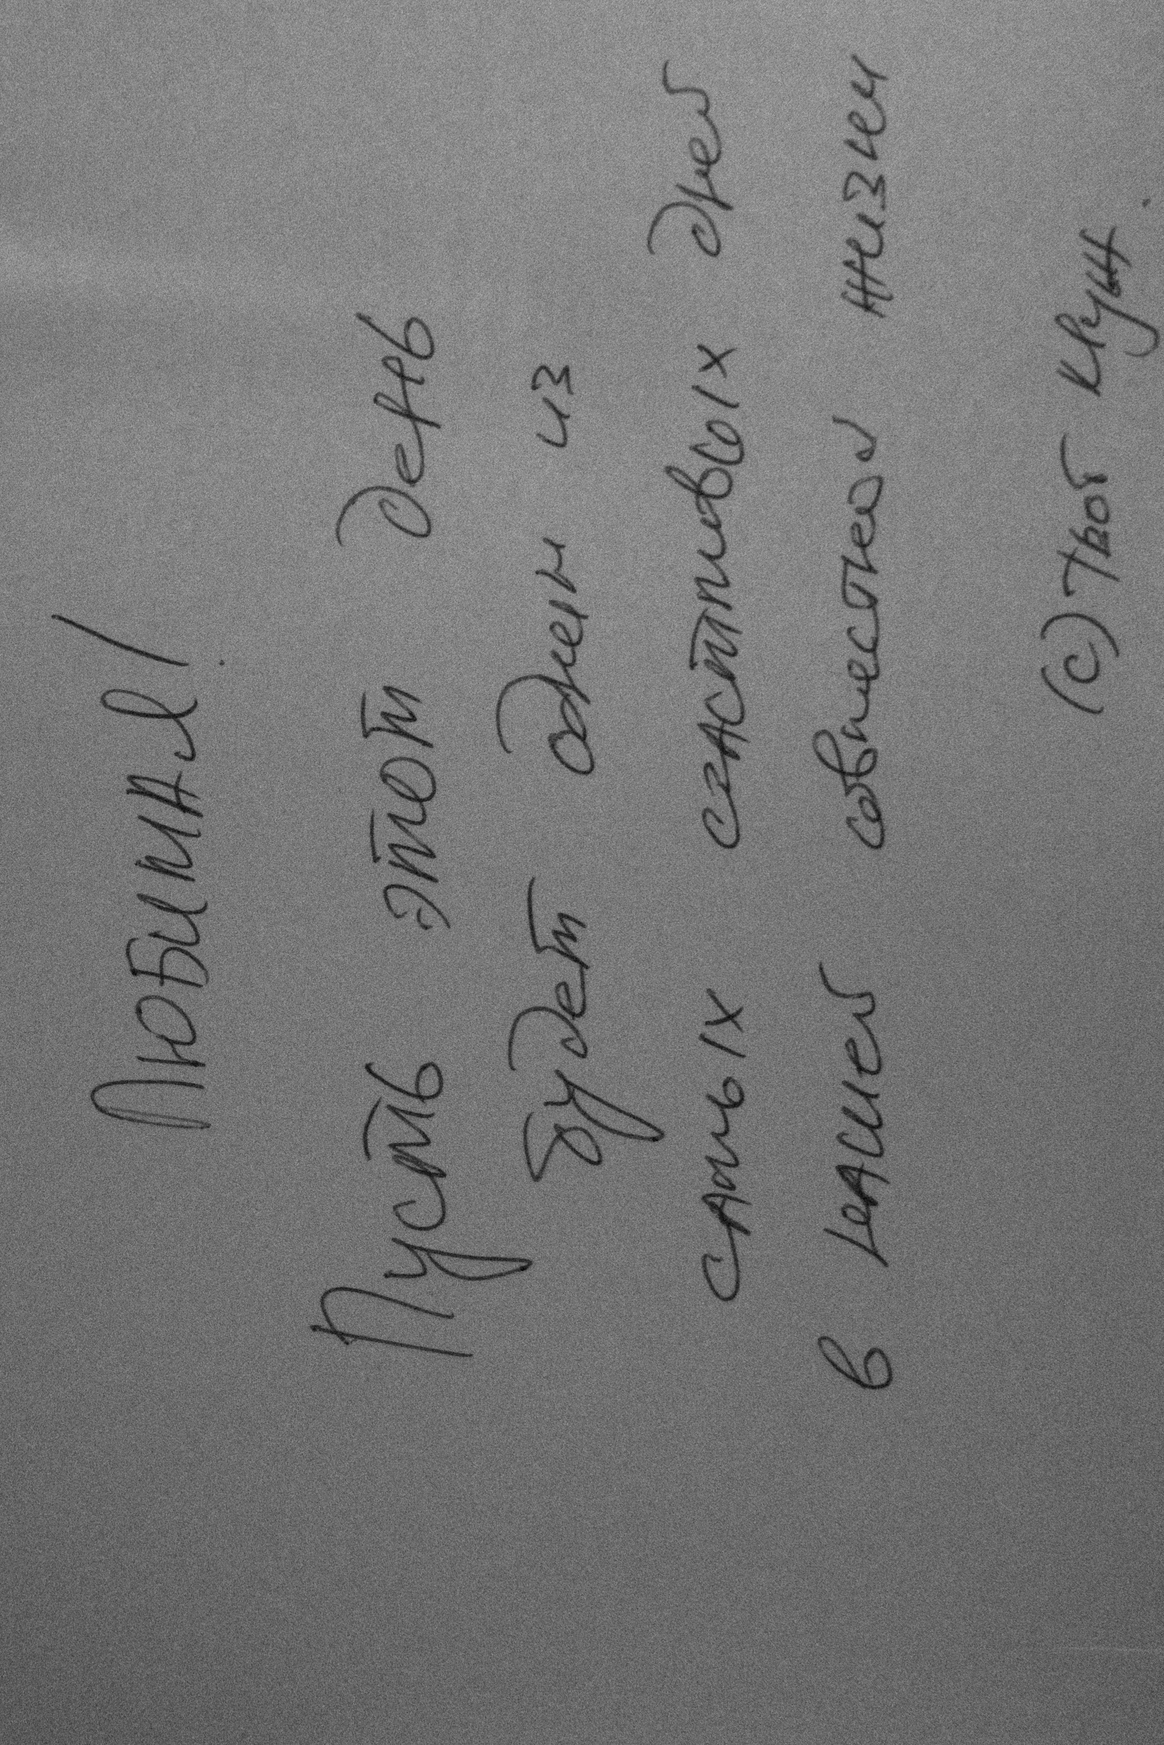 Любимая!
Пусть этот день
будет один из
самых счастливых дней
в нашей совместной жизни
(с) Твой